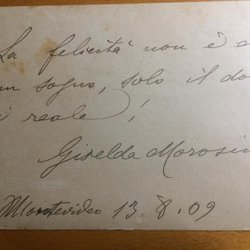 La felicità non è
un sogno, solo il do
è reale!
Giselda Morosi
Montevideo 13.8.09